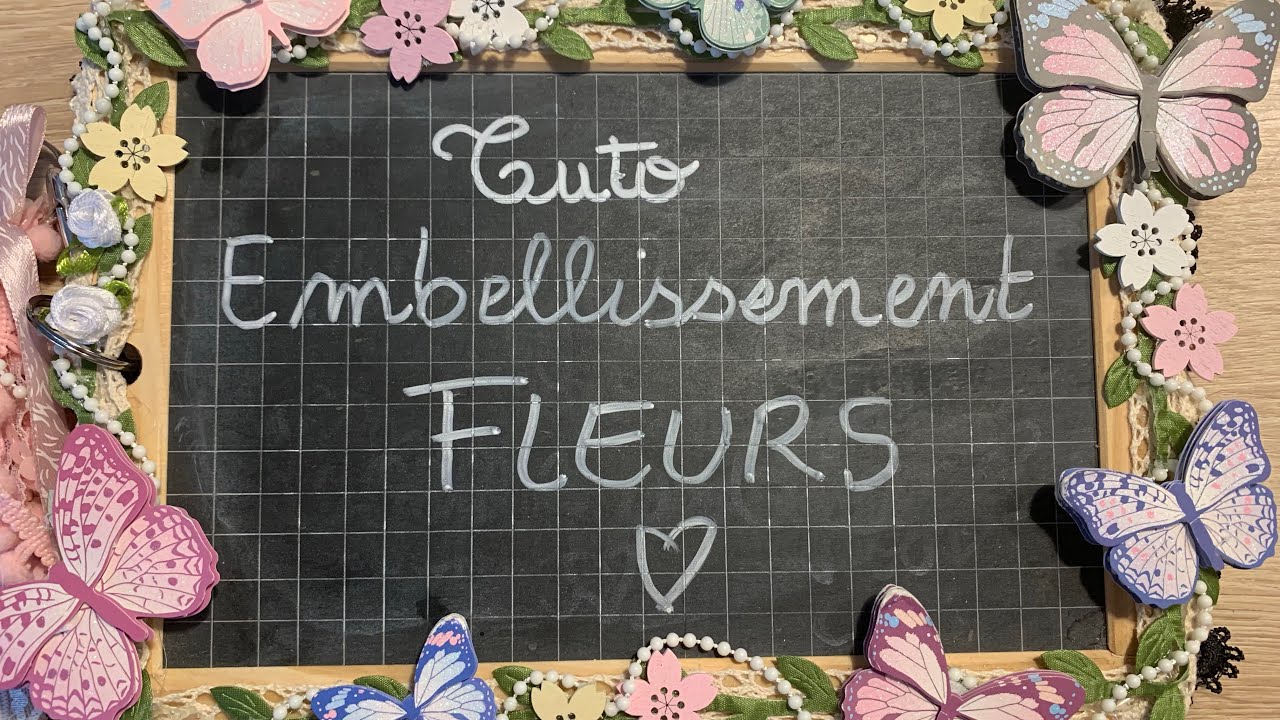 Tuto
Embellissement
FLEURS